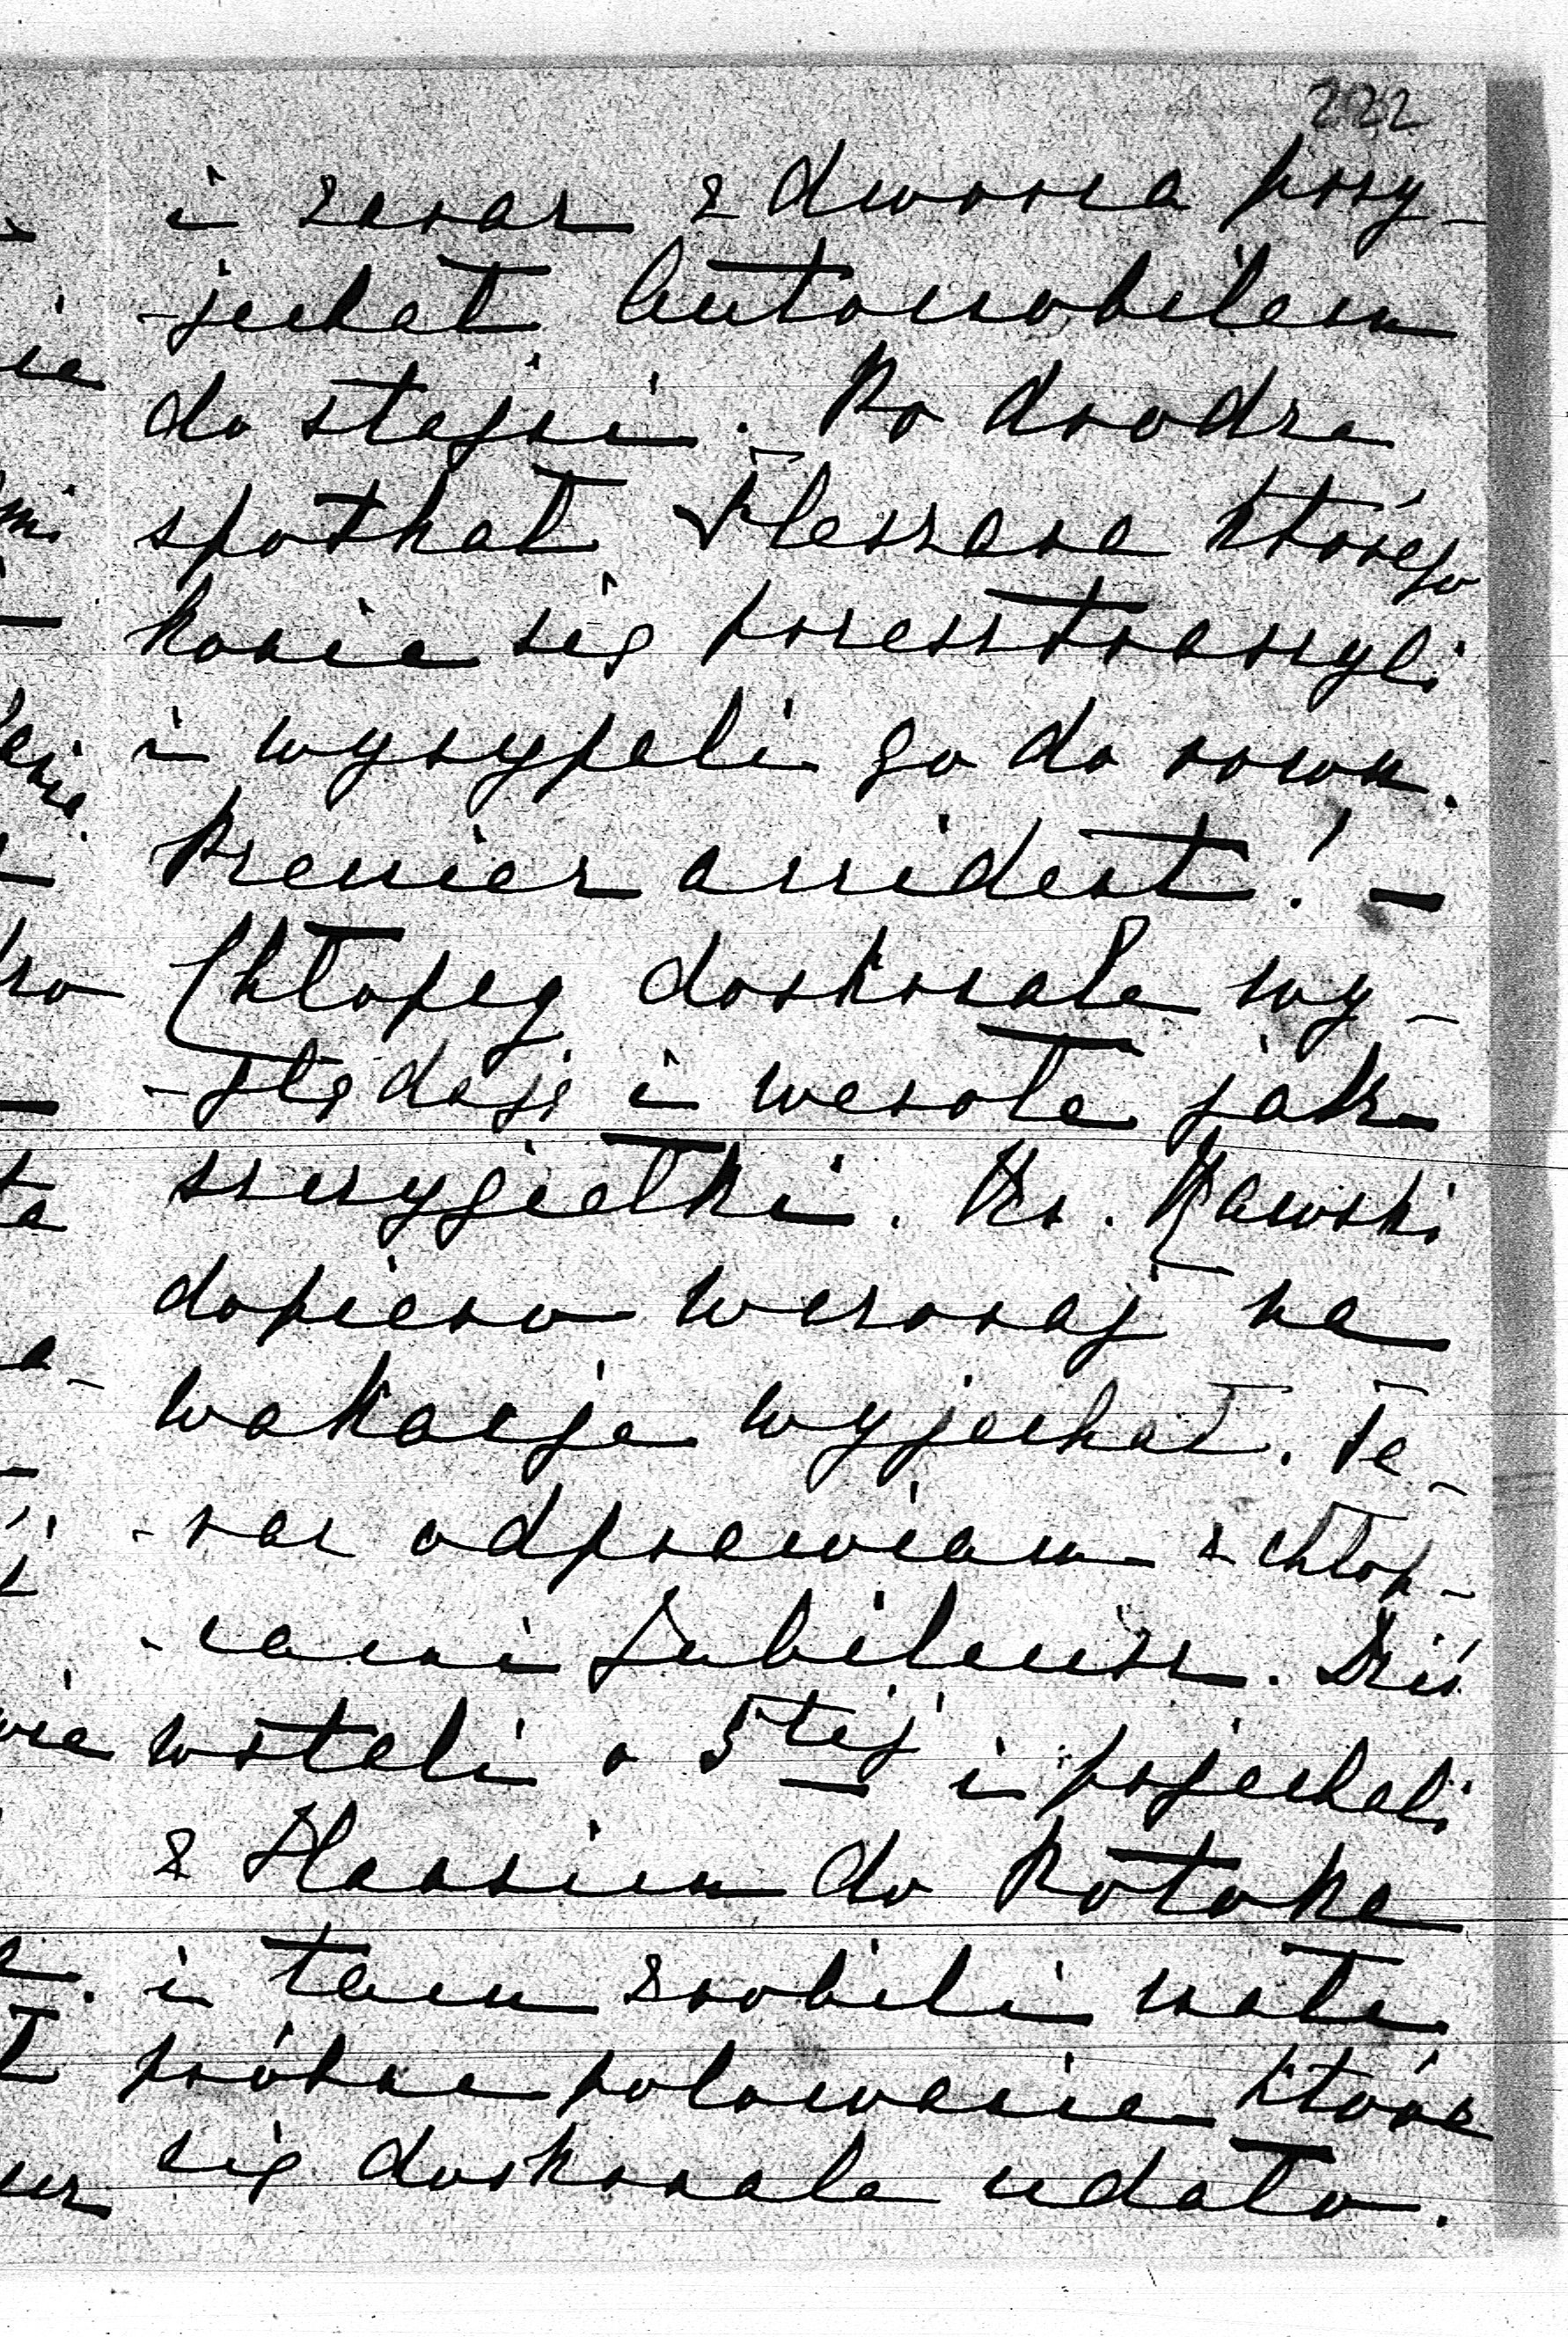 222
i zaraz z dworca przy-
-jechał Automobilem
do stajni. Po drodze
spotkał Fleszara którego
konie się przestraszyli
i wysypali go do rowu.
Premier accident! —
Chłopcy doskonale wy-
-glądają i wesołe jak
szczygiełki. Ks. Kawski
dopiero wczoraj na
wakacje wyjechał. Te-
-raz odprawiam z chłop-
-cami Jubileusz. Dziś
wstali o 5tej i pojechali
z Hassiem do Potoka
i tam zrobili małe
próbne polowanie które
się doskonale udało.